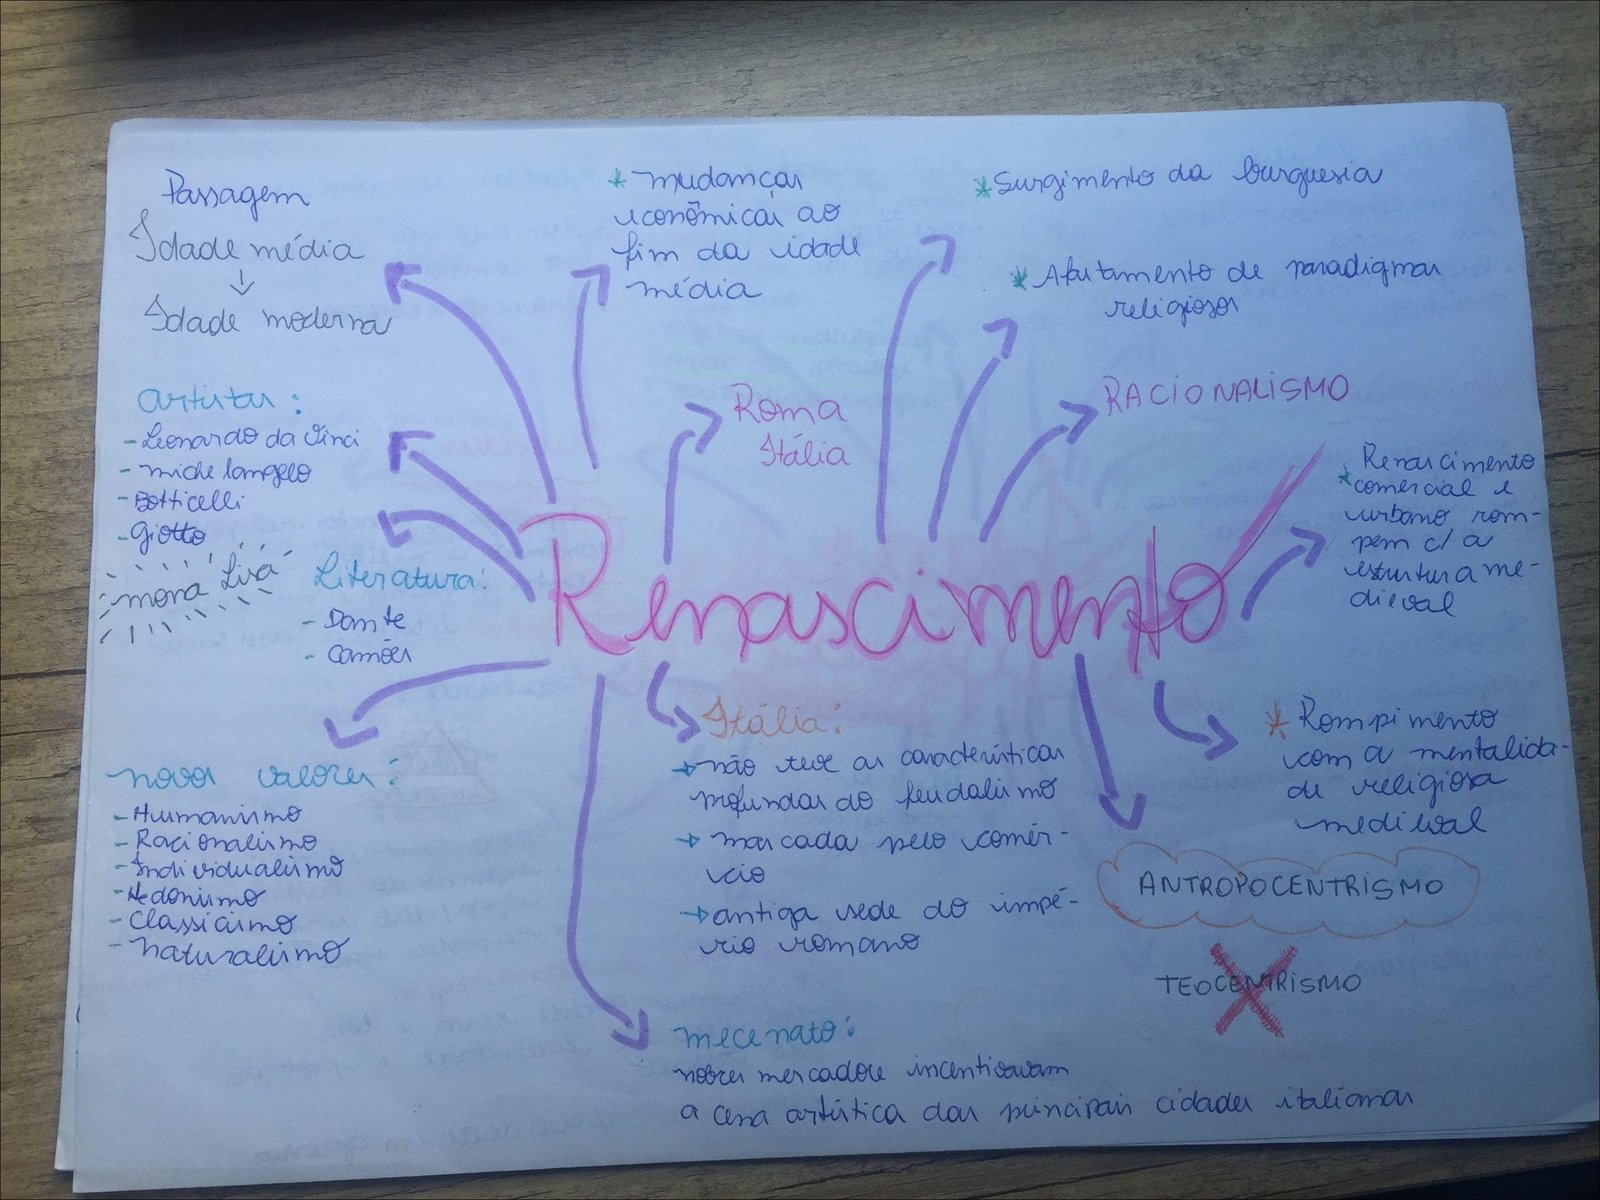 Passagem
Idade média
↓
Idade moderna
* mudanças
econômicas ao
fim da idade
média
* Surgimento da burguesia
* Afastamento de paradigmas
religiosos
Roma
Itália
RACIONALISMO
* Renascimento
comercial e
urbano rom-
pem c/ a
estrutura me-
dieval
artistas:
- Leonardo da Vinci
- michelangelo
- Botticelli
- Giotto
mona Lisa
Literatura:
- Dante
- Camões
Renascimento
novos valores:
- Humanismo
- Racionalismo
- Individualismo
- Hedonismo
- Classicismo
- naturalismo
Itália:
→ não teve as características
profundas do feudalismo
→ marcada pelo comér-
cio
→ antiga sede do impé-
rio romano
* Rompimento
com a mentalida-
de religiosa
medieval
ANTROPOCENTRISMO
TEOCENTRISMO
mecenato:
nobres mercadore incentivavam
a cena artística das principais cidades italianas